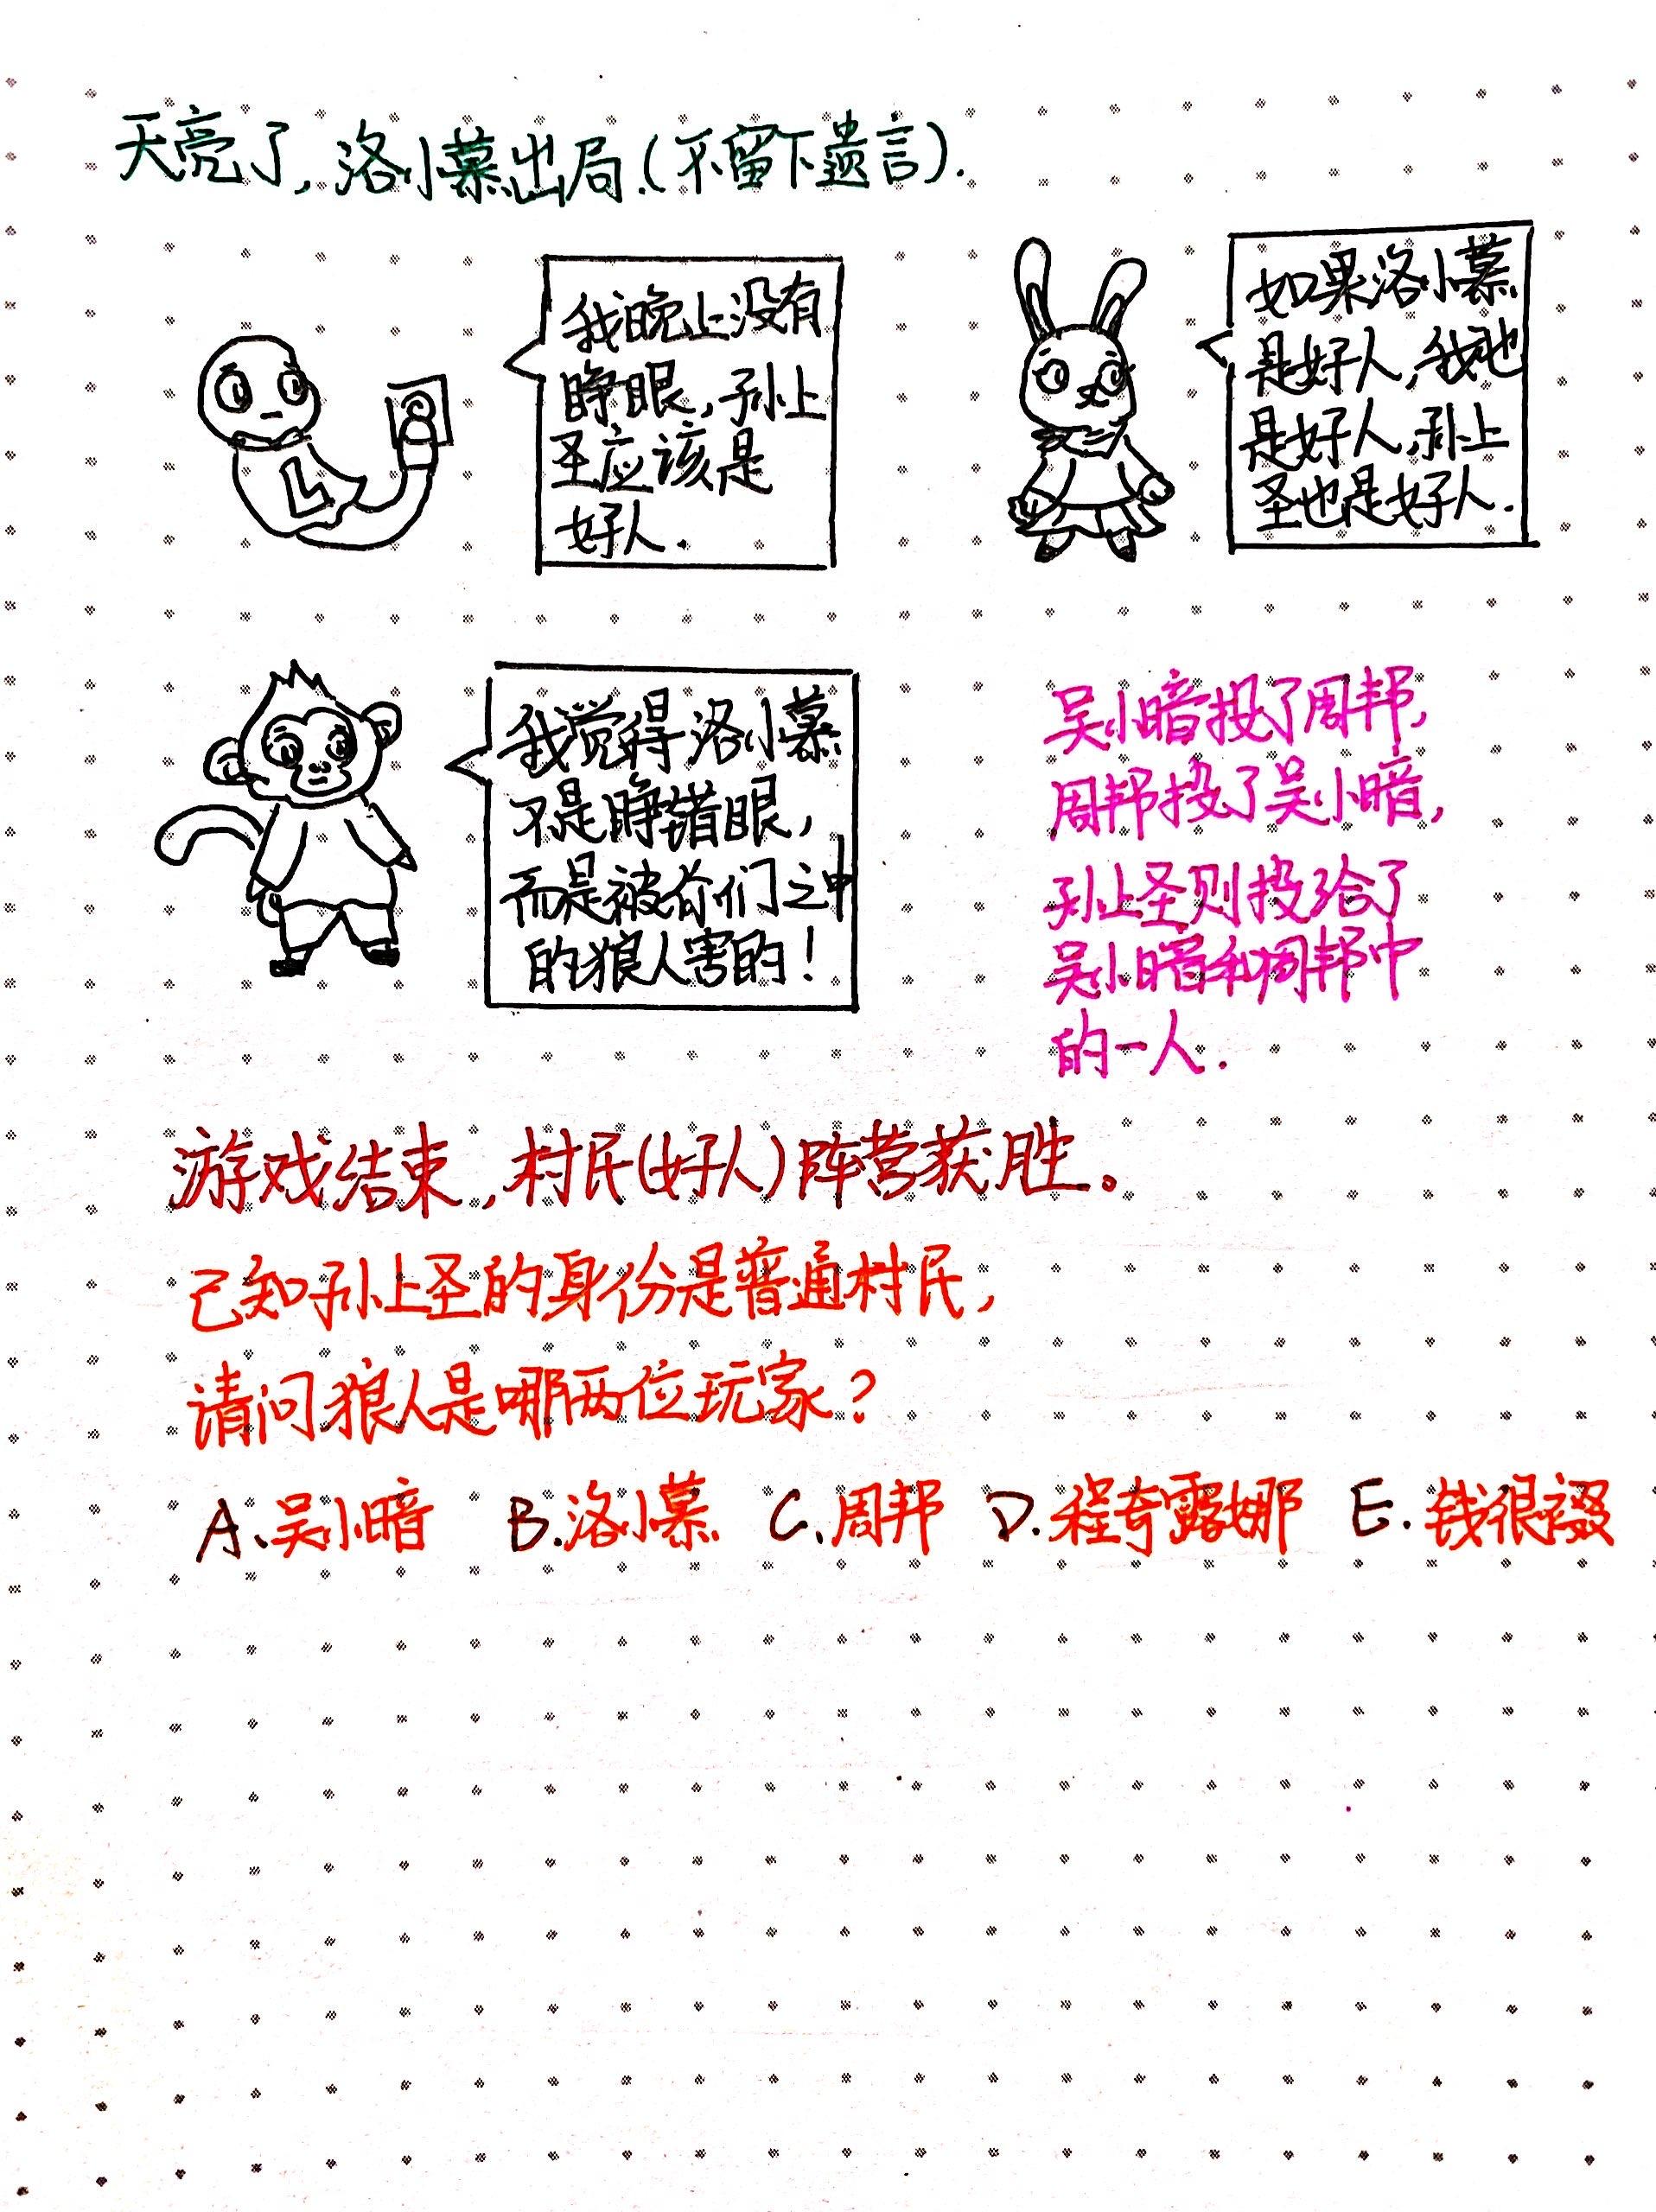 天亮了,洛小慕出局.(不留下遗言).
我晚上没有
睁眼,孙上
圣应该是
好人.
如果洛小慕
是好人,我也
是好人,孙上
圣也是好人.
我觉得洛小慕
不是睁错眼,
而是被你们之中
的狼人害的!
吴小暗投了周邦,
周邦投了吴小暗,
孙上圣则投给了
吴小暗和周邦中
的一人.
游戏结束,村民(好人)阵营获胜。
已知孙上圣的身份是普通村民,
请问狼人是哪两位玩家?
A.吴小暗 B.洛小慕 C.周邦 D.程奇露娜 E.钱很裰